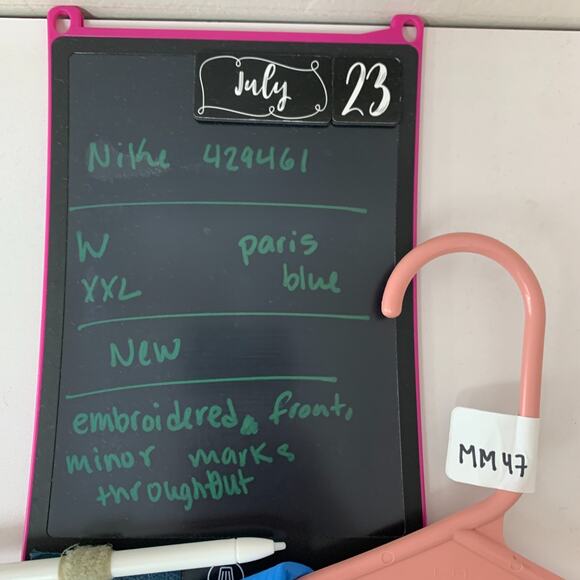 July 23
Nike 429461
W paris
XXL blue
New
embroidered front,
minor marks
throughout
MM47